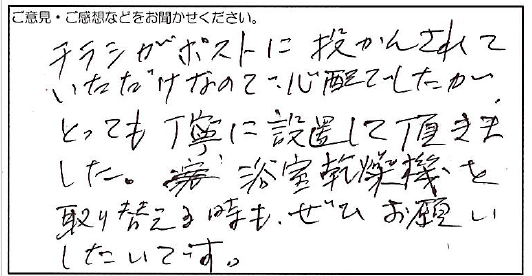 ご意見・ご感想などをお聞かせください。
チラシがポストに投かんされて
いただけなので心配でしたが、
とっても丁寧に設置して頂きま
した。浴室乾燥機を
取り替える時も、ぜひお願い
したいです。